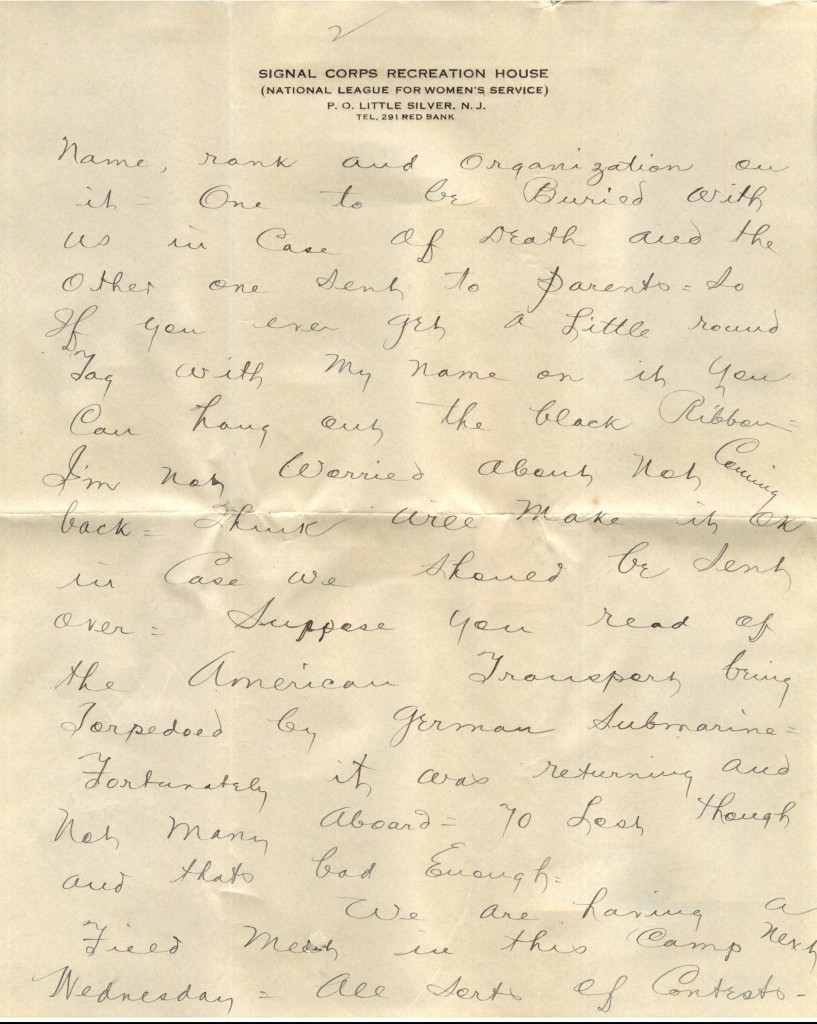 2
SIGNAL CORPS RECREATION HOUSE
(NATIONAL LEAGUE FOR WOMEN'S SERVICE)
P. O. LITTLE SILVER, N. J.
TEL. 291 RED BANK
Name, rank and Organization on
it = One to be Buried With
us in Case Of Death and the
Other one Sent to parents = So
If you ever get a Little round
Tag With My name on it you
Can hang out the black Ribbon =
I'm not Worried About Not Coming
back = Think Will Make it Ok
in Case We Should be Sent
over = Suppose you read of
the American Transport being
Torpedoed by German Submarine =
Fortunately it was returning and
Not Many Aboard = 70 Lost though
and thats bad Enough =
We are having a
Field Meet in this Camp next
Wednesday = All Sorts of Contests -